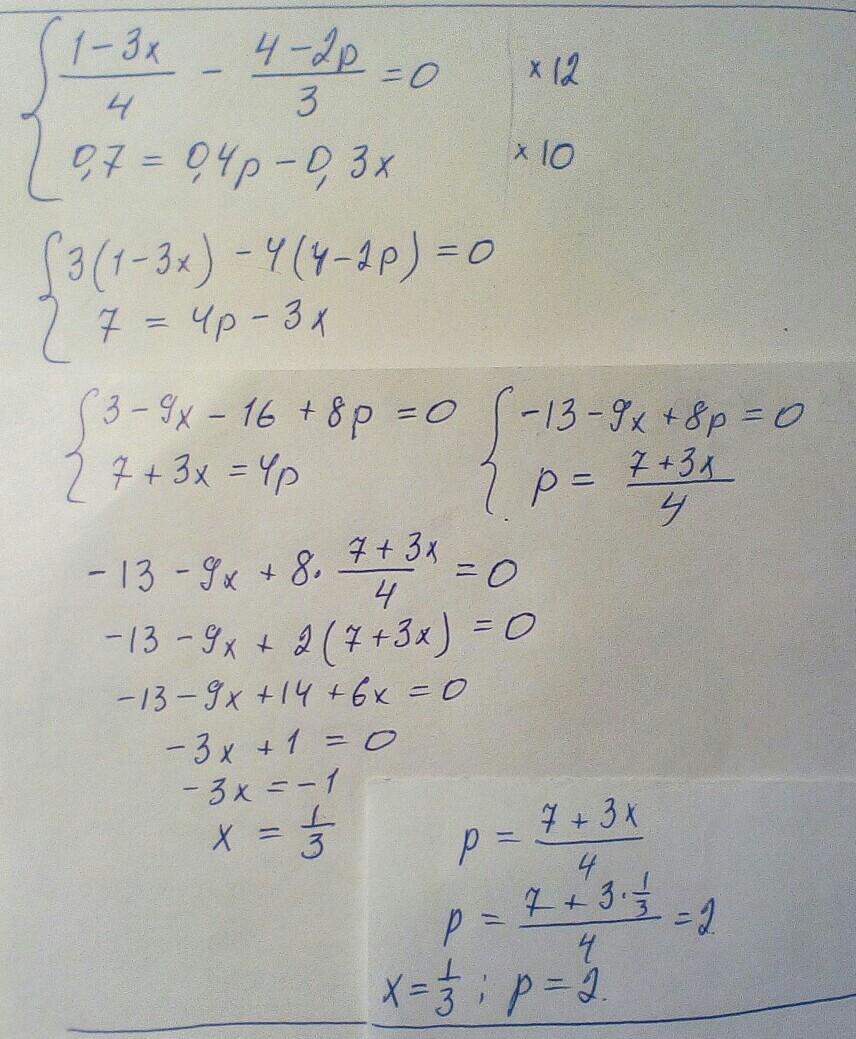 (1-3x)/4 - (4-2p)/3 = 0 ×12
0,7 = 0,4p - 0,3x ×10
3(1-3x) - 4(4-2p) = 0
7 = 4p - 3x
3 - 9x - 16 + 8p = 0
7 + 3x = 4p
-13 - 9x + 8p = 0
p = (7+3x)/4
-13 - 9x + 8 · (7+3x)/4 = 0
-13 - 9x + 2(7+3x) = 0
-13 - 9x + 14 + 6x = 0
-3x + 1 = 0
-3x = -1
x = 1/3
p = (7+3x)/4
p = (7+3·1/3)/4 = 2
x = 1/3 ; p = 2.